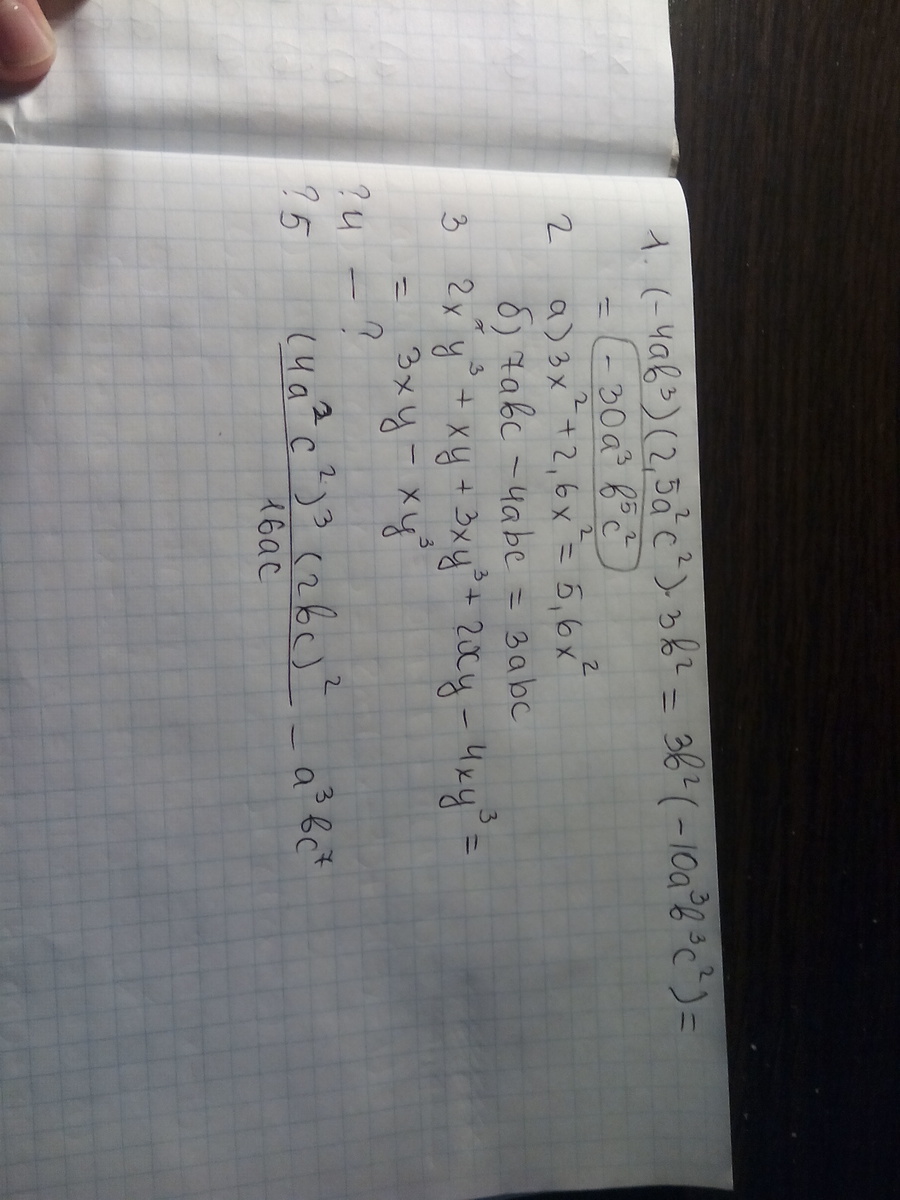 1. (-4ab³)(2,5a²c²)·3b² = 3b²(-10a³b³c²) =
= -30a³b⁵c²
2 а) 3x² + 2,6x² = 5,6x²
б) 7abc - 4abc = 3abc
3 2xy³ + xy + 3xy³ + 2xy - 4xy³ =
= 3xy - xy³
?4 - ?
?5 (4a²c²)³(2bc)² / 16ac - a³bc⁷